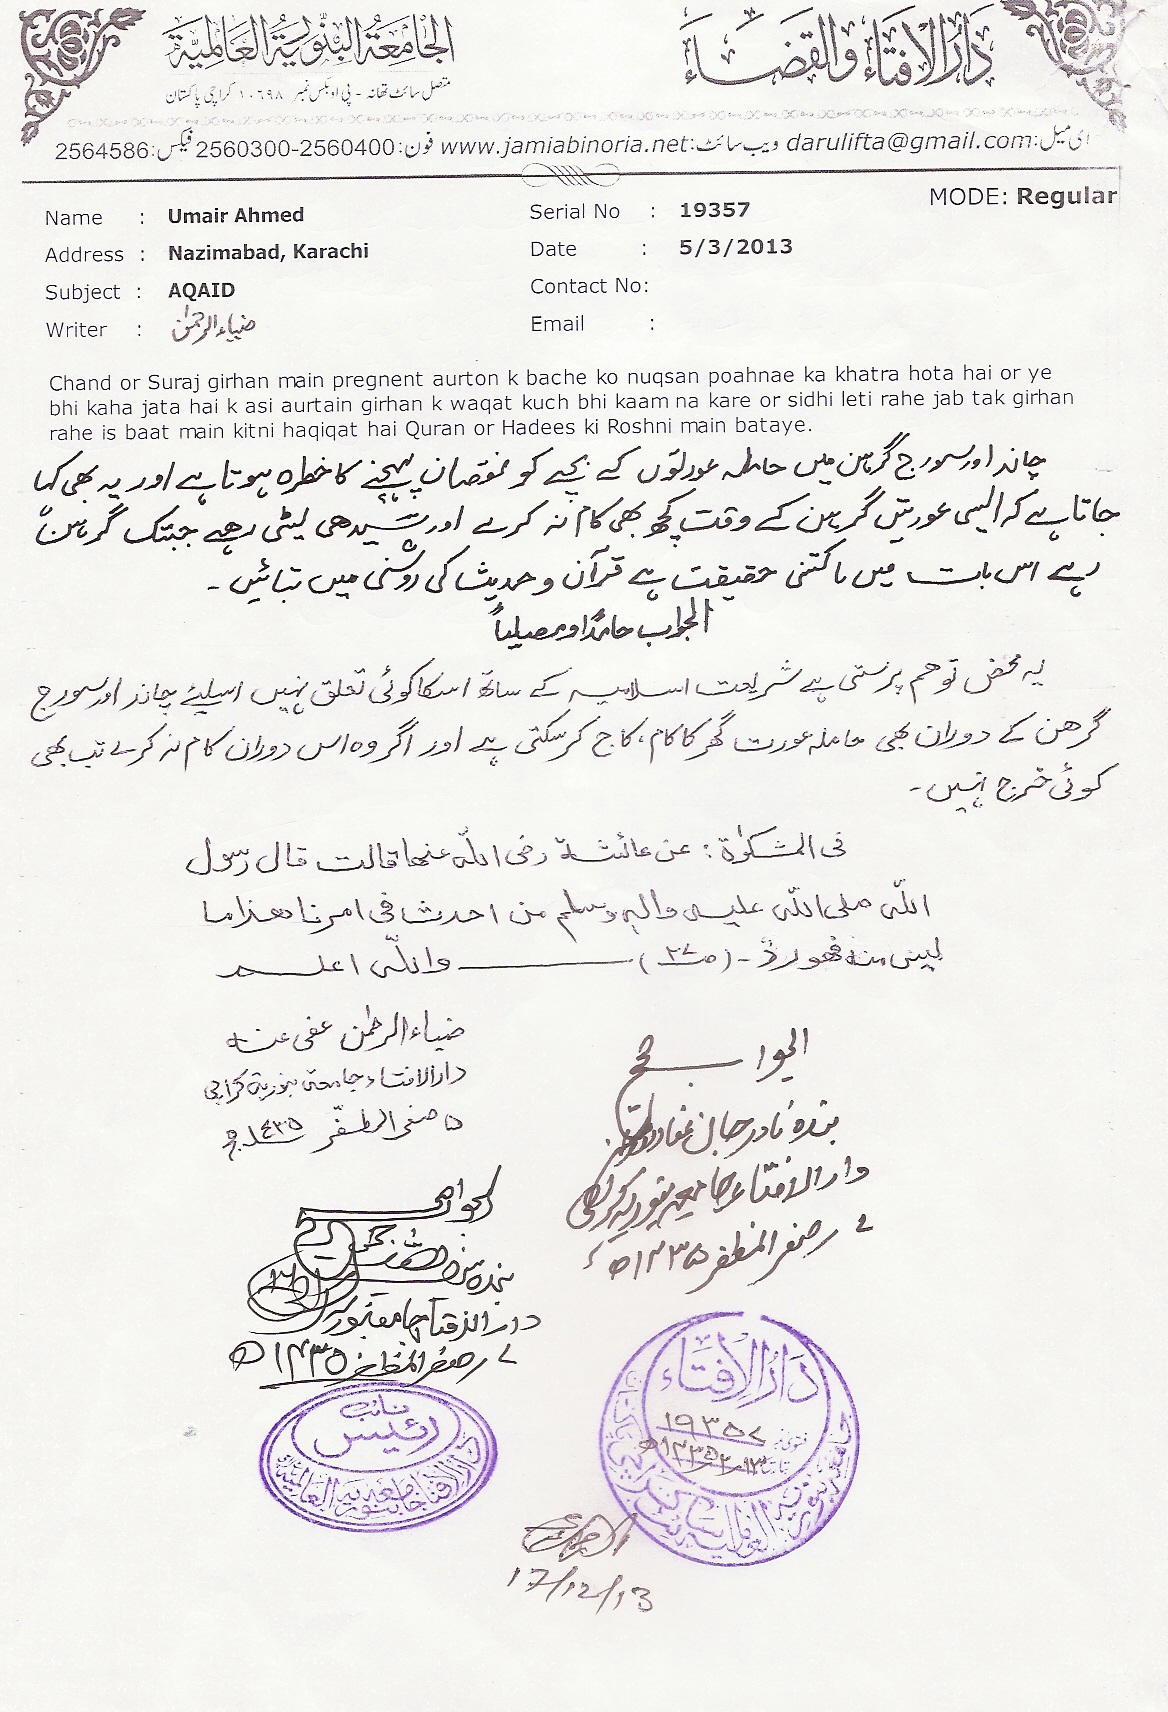 دَارُ الإفتَاء وَالقضَاء
الجَامِعَةُ البَنُّورِيَّة العَالَمِيَّة
متصل سائٹ تھانہ - پی او بکس نمبر ۱۰۶۹۸ کراچی پاکستان
ای میل: darulifta@gmail.com ویب سائٹ: www.jamiabinoria.net فون: 2560300-2560400 فیکس: 2564586
MODE: Regular
Name : Umair Ahmed Serial No : 19357
Address : Nazimabad, Karachi Date : 5/3/2013
Subject : AQAID Contact No:
Writer : ضیاء الرحمٰن Email :
Chand or Suraj girhan main pregnent aurton k bache ko nuqsan poahnae ka khatra hota hai or ye
bhi kaha jata hai k asi aurtain girhan k waqat kuch bhi kaam na kare or sidhi leti rahe jab tak girhan
rahe is baat main kitni haqiqat hai Quran or Hadees ki Roshni main bataye.
چاند اور سورج گرہن میں حاملہ عورتوں کے بچے کو نقصان پہچنے کا خطرہ ہوتا ہے اور یہ بھی کہا
جاتا ہے کہ ایسی عورتیں گرہن کے وقت کچھ بھی کام نہ کرے اور سیدھی لیٹی رھے جبتک گرہن
رہے اس بات میں کتنی حقیقت ہے قرآن و حدیث کی روشنی میں بتائیں۔
الجواب حامدًا ومصلیاً
یہ محض توھم پرستی ہے شریعت اسلامیہ کے ساتھ اسکا کوئی تعلق نہیں اسلیئے چاند اور سورج
گرھن کے دوران بھی حاملہ عورت گھر کا کام، کاج کرسکتی ہے اور اگر وہ اس دوران کام نہ کرے تب بھی
کوئی حرج نہیں۔
فی المشکوٰۃ: عن عائشۃ رضی اللہ عنھا قالت قال رسول
اللہ صلی اللہ علیہ والہ وسلم من احدث فی امرنا ھذا ما
لیس منہ فھو ردّ۔ (صـ۲۷) واللہ اعلم
ضیاء الرحمٰن عفی عنہ
دار الافتاء جامعہ بنوریۃ کراچی
۵ صفر المظفّر ۱۴۳۵ھ
الجواب صحیح
بندہ نادر جان
دار الافتاء جامعہ بنوریہ کراچی
۷ صفر المظفر ۱۴۳۵ھ
الجواب صحیح
دار الافتاء جامعہ بنوریہ
۷ صفر المظفر ۱۴۳۵ھ
نائب
رئیس
دار الافتاء جامعہ بنوریہ العالمیہ
دَارُ الإفتَاء
فتویٰ نمبر ۱۹۳۵۷
17/12/13